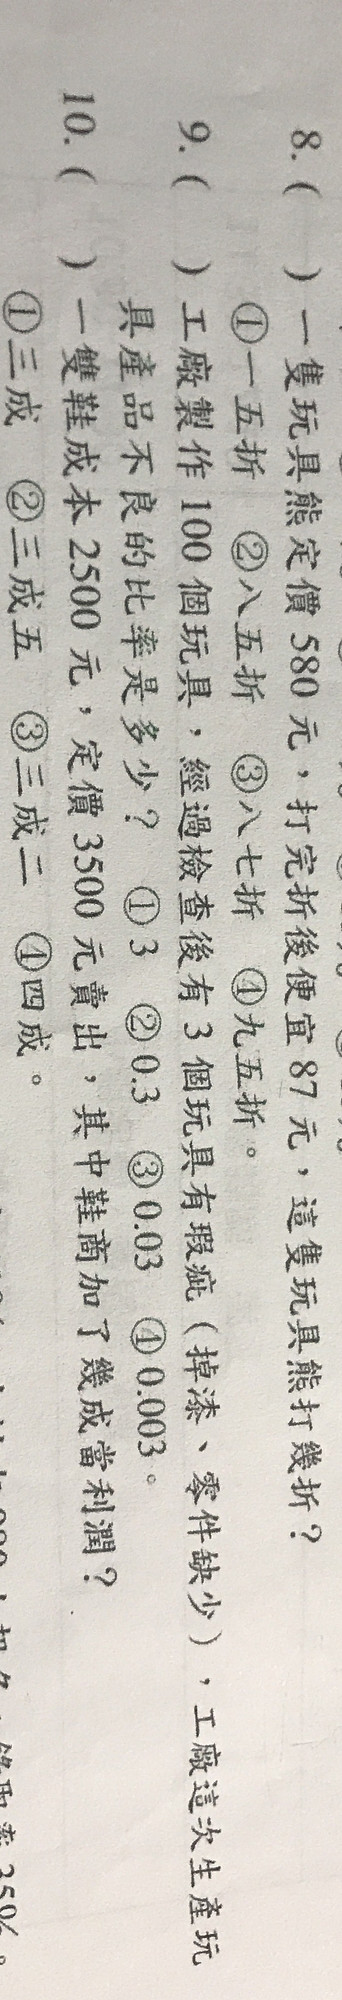 8.(　)一隻玩具熊定價 580 元，打完折後便宜 87 元，這隻玩具熊打幾折？
①一五折　②八五折　③八七折　④九五折。
9.(　)工廠製作 100 個玩具，經過檢查後有 3 個玩具有瑕疵（掉漆、零件缺少），工廠這次生產玩
具產品不良的比率是多少？　①3　②0.3　③0.03　④0.003。
10.(　)一雙鞋成本 2500 元，定價 3500 元賣出，其中鞋商加了幾成當利潤？
①三成　②三成五　③三成二　④四成。
35%。